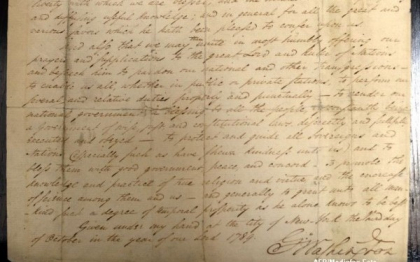 with which we are
and diffusing useful knowledge; and in general for all the great and
various favors which he hath been pleased to confer upon us.
And also that we may unite in most humbly offering our
prayers and supplications to the great Lord and Ruler of Nations
and beseech him to pardon our national and other transgressions—
to enable us all, whether in public or private stations, to perform our
several and relative duties properly and punctually— to render our
national government a blessing to all the people, by constantly being
a Government of wise, just and constitutional laws, discreetly and faithfully
executed and obeyed— to protect and guide all Sovereigns and
Nations (especially such as have shewn kindness unto us) and to
bless them with good government, peace, and concord— To promote the
knowledge and practice of true religion and virtue, and the encrease
of science among them and us— and generally to grant unto all man
kind such a degree of temporal prosperity as he alone knows to be best
Given under my hand at the City of New-York the third day
of October in the year of our Lord 1789.
Go Washington